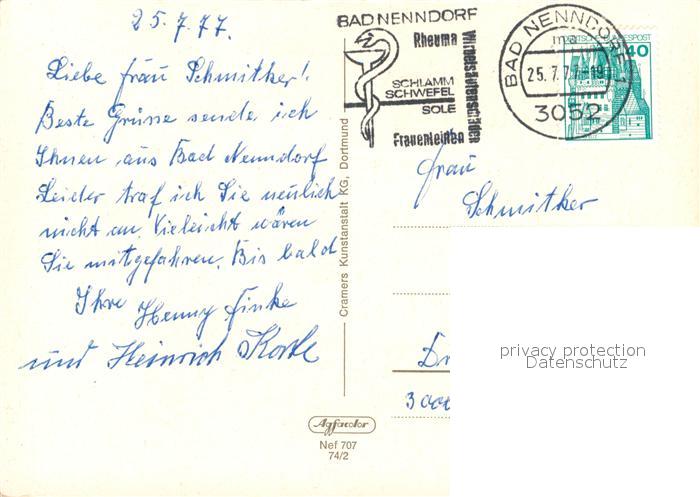 25.7.77.
Liebe Frau Schmitker!
Beste Grüsse sende ich
Ihnen aus Bad Nenndorf
Leider traf ich Sie neulich
nicht an. Vieleicht wären
Sie mitgefahren. Bis bald
Ihre Henny Finke
und Heinrich
BAD NENNDORF
Rheuma
Wirbelsäulenschäden
SCHLAMM
SCHWEFEL
SOLE
Frauenleiden
BAD NENNDORF 1
ma
25.7.77-19
3052
DEUTSCHE BUNDESPOST
40
Frau
Schmitker
3000
privacy protection
Datenschutz
Cramers Kunstanstalt KG, Dortmund
Agfacolor
Nef 707
74/2